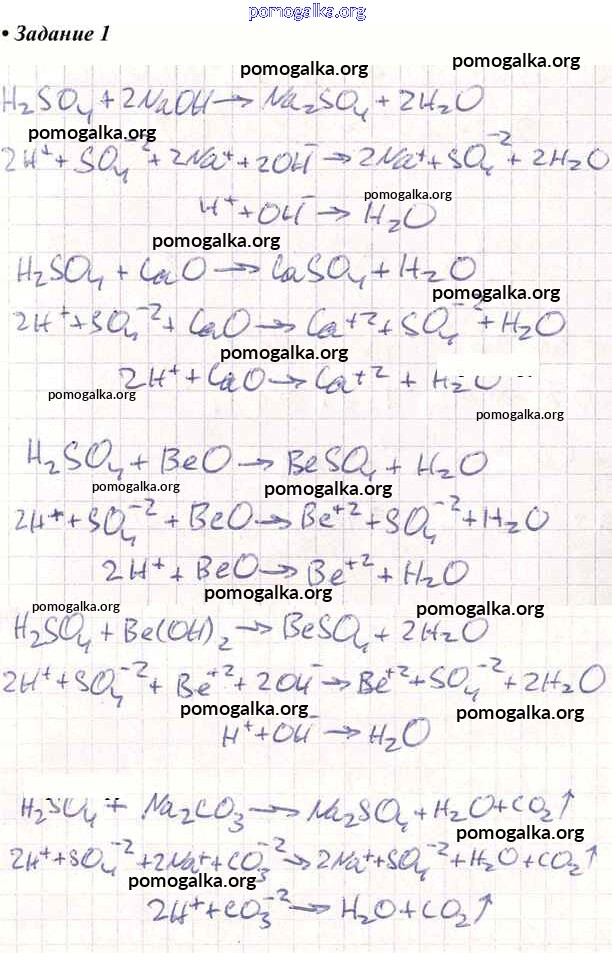 pomogalka.org
• Задание 1
pomogalka.org pomogalka.org
H₂SO₄ + 2NaOH → Na₂SO₄ + 2H₂O
pomogalka.org
2H⁺ + SO₄⁻² + 2Na⁺ + 2OH⁻ → 2Na⁺ + SO₄⁻² + 2H₂O
pomogalka.org
H⁺ + OH⁻ → H₂O
pomogalka.org
H₂SO₄ + CaO → CaSO₄ + H₂O
pomogalka.org
2H⁺ + SO₄⁻² + CaO → Ca⁺² + SO₄⁻² + H₂O
pomogalka.org
2H⁺ + CaO → Ca⁺² + H₂O
pomogalka.org
pomogalka.org
H₂SO₄ + BeO → BeSO₄ + H₂O
pomogalka.org pomogalka.org
2H⁺ + SO₄⁻² + BeO → Be⁺² + SO₄⁻² + H₂O
2H⁺ + BeO → Be⁺² + H₂O
pomogalka.org
pomogalka.org pomogalka.org
H₂SO₄ + Be(OH)₂ → BeSO₄ + 2H₂O
2H⁺ + SO₄⁻² + Be⁺² + 2OH⁻ → Be⁺² + SO₄⁻² + 2H₂O
pomogalka.org pomogalka.org
H⁺ + OH⁻ → H₂O
H₂SO₄ + Na₂CO₃ → Na₂SO₄ + H₂O + CO₂↑
pomogalka.org
2H⁺ + SO₄⁻² + 2Na⁺ + CO₃⁻² → 2Na⁺ + SO₄⁻² + H₂O + CO₂↑
pomogalka.org
2H⁺ + CO₃⁻² → H₂O + CO₂↑